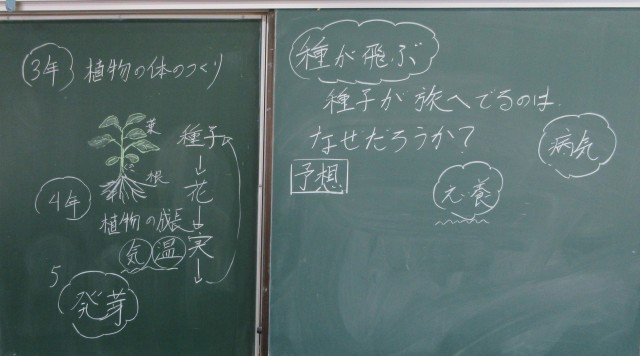 3年 植物の体のつくり
葉
根
種子
花
4年
植物の成長
気温
実
5
発芽
種が飛ぶ
種子が旅へでるのは
なぜだろうか?
予想
病気